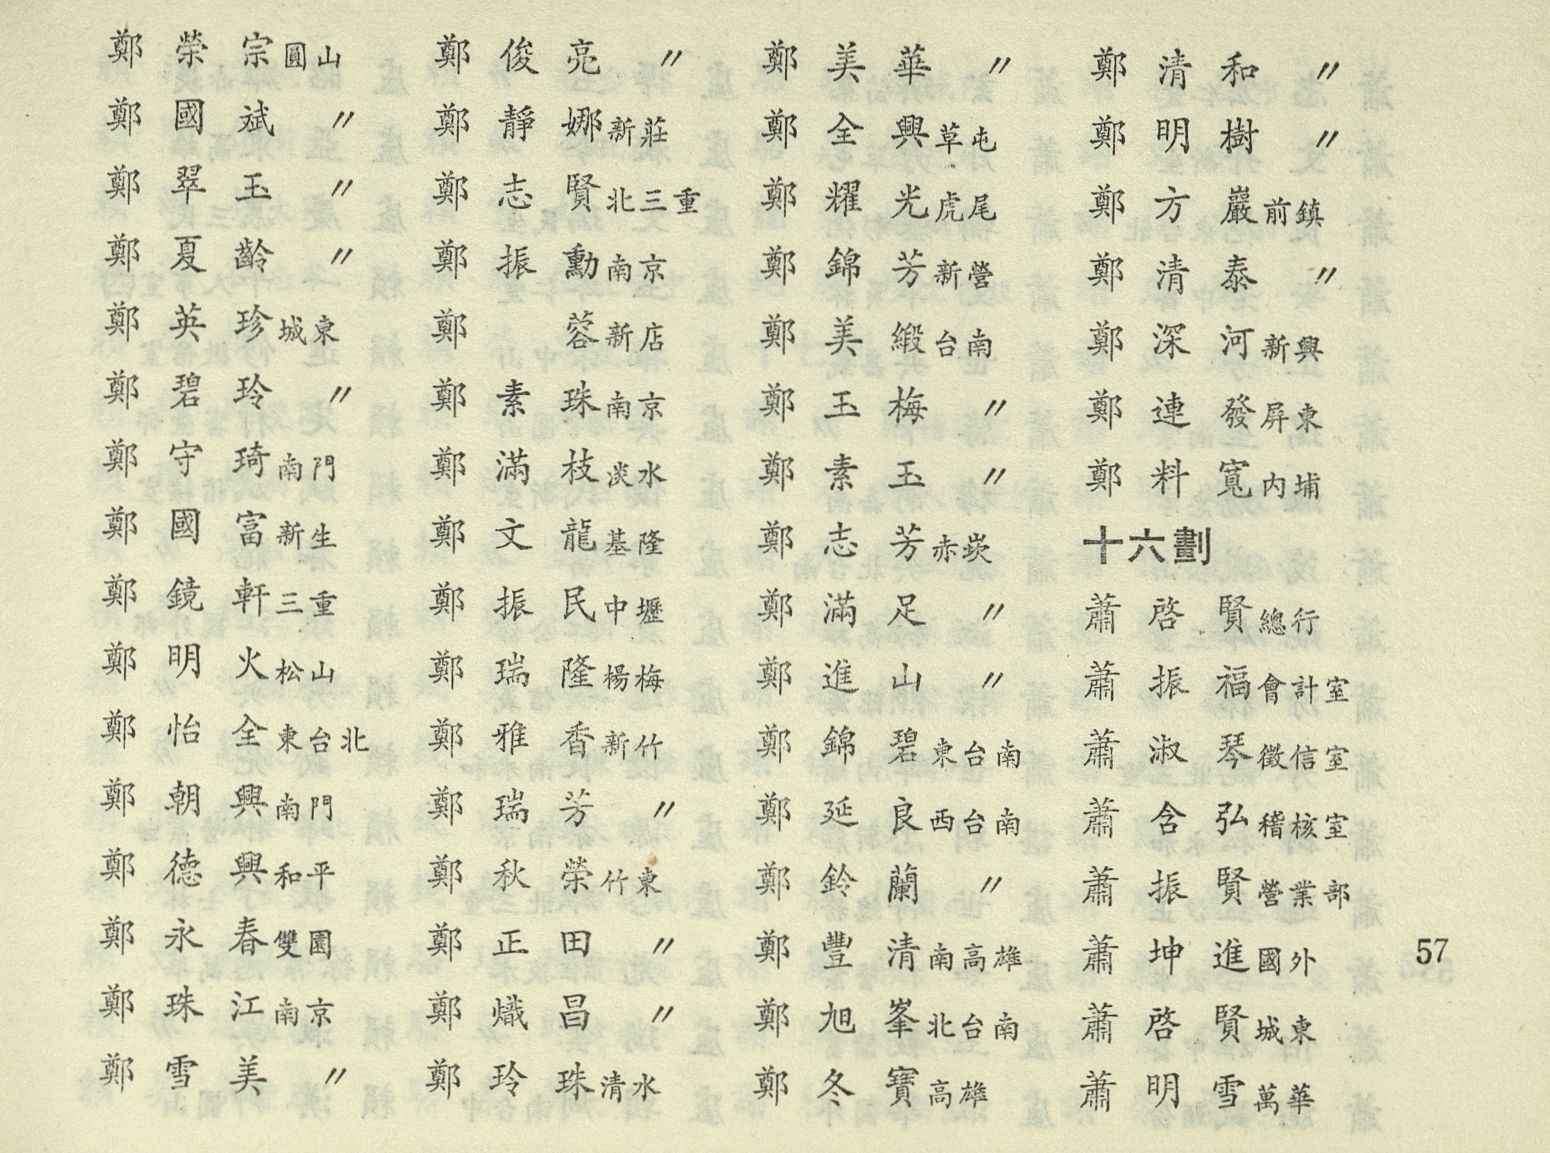 鄭榮宗圓山
鄭國斌〃
鄭翠玉〃
鄭夏齡〃
鄭英珍城東
鄭碧玲〃
鄭守琦南門
鄭國富新生
鄭鏡軒三重
鄭明火松山
鄭怡全東台北
鄭朝興南門
鄭德興和平
鄭永春雙園
鄭珠江南京
鄭雪美〃
鄭俊亮〃
鄭靜娜新莊
鄭志賢北三重
鄭振勳南京
鄭蓉新店
鄭素珠南京
鄭滿枝淡水
鄭文龍基隆
鄭振民中壢
鄭瑞隆楊梅
鄭雅香新竹
鄭瑞芳〃
鄭秋榮竹東
鄭正田〃
鄭熾昌〃
鄭玲珠清水
鄭美華〃
鄭全興草屯
鄭耀光虎尾
鄭錦芳新營
鄭美緞台南
鄭玉梅〃
鄭素玉〃
鄭志芳赤崁
鄭滿足〃
鄭進山〃
鄭錦碧東台南
鄭延良西台南
鄭鈴蘭〃
鄭豐清南高雄
鄭旭峯北台南
鄭冬寶高雄
鄭清和〃
鄭明樹〃
鄭方巖前鎮
鄭清泰〃
鄭深河新興
鄭連發屏東
鄭料寬內埔
十六劃
蕭啓賢總行
蕭振福會計室
蕭淑琴徵信室
蕭含弘稽核室
蕭振賢營業部
蕭坤進國外
蕭啓賢城東
蕭明雪萬華
57